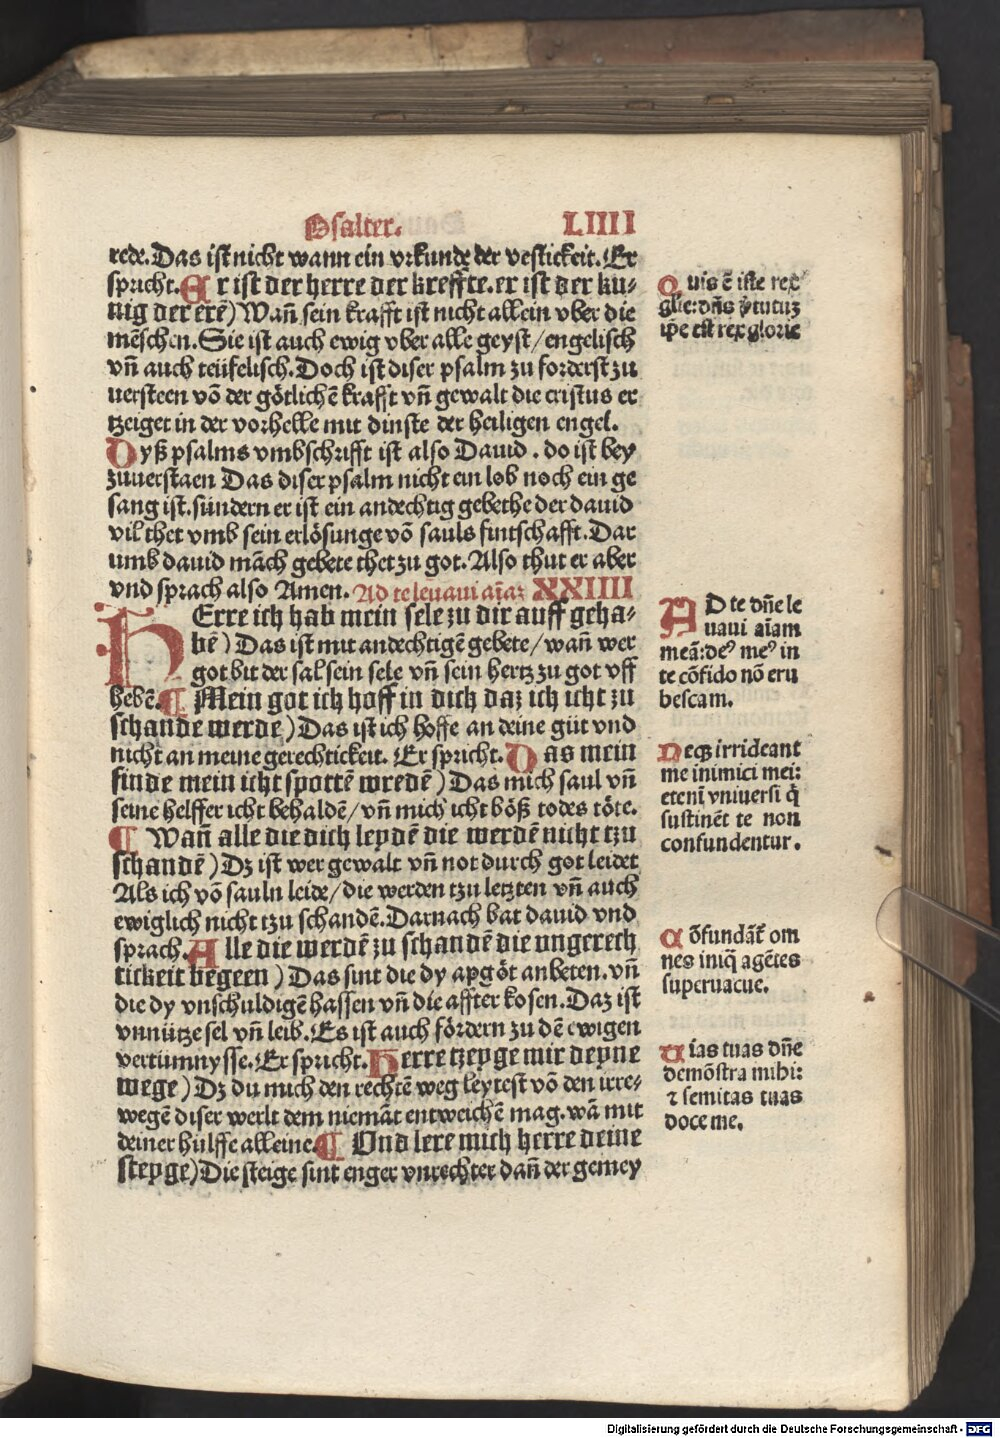 Psalter. LIIII
rede. Das ist nicht wann ein vrkunde der vestickeit. Er
spricht. Er ist der herre der kreffte. er ist der ku⸗
nig der erē) Wañ sein krafft ist nicht allein vber die
mēschen. Sie ist auch ewig vber alle geyst/ engelisch
vñ auch teüfelisch. Doch ist diser psalm zu forderst zu
uersteen vō der götlichē krafft vñ gewalt die cristus er
tzeiget in der vorhelle mit dinste der heiligen engel.
Dyß psalms vmbschrifft ist also Dauid . do ist bey
zuuerstaen Das diser psalm nicht ein lob noch ein ge
sang ist. sundern er ist ein andechtig gebethe der dauid
vil thet vmb sein erlösunge vō sauls fintschafft. Dar
umb dauid māch gebete thet zu got. Also thut er aber
vnd sprach also Amen. Ad te leuaui aīaz XXIIII
HErre ich hab mein sele zu dir auff geha⸗
bē) Das ist mit andechtigē gebete/ wañ wer
got bit der sal sein sele vñ sein hertz zu got vff
hebē. ¶ Mein got ich hoff in dich daz ich icht zu
schande werde) Das ist ich hoffe an deine güt vnd
nicht an meine gerechtickeit. Er spricht. Das mein
finde mein icht spottē wredē) Das mich saul vñ
seine helffer icht behaldē/ vñ mich icht böß todes töte.
¶ Wañ alle die dich leydē die werdē nicht tzu
schandē) Dz ist wer gewalt vñ not durch got leidet
Als ich vō sauln leide/ die werden tzu letzten vñ auch
ewiglich nicht tzu schandē. Darnach bat dauid vnd
sprach. Alle die werdē zu schandē die vngerech
tickeit begeen) Das sint die dy apgöt anbeten. vñ
die dy vnschuldigē hassen vñ die affter kosen. Daz ist
vnnütze sel vñ leib. Es ist auch fördern zu dē ewigen
vertümnysse. Er spricht. Herre tzeyge mir deyne
wege) Dz du mich den rechtē weg leytest vō den irre⸗
wegē diser werlt dem niemāt entweichē mag. wā mit
deiner hülffe alleine. ¶ Vnd lere mich herre deine
steyge) Die steige sint enger vnrechter dañ der gemey
Quis ē iste rex
glīe: dñs ꝟtutuz
ip̄e est rex glorie
AD te dñe le
uaui aīam
meā: deꝰ meꝰ in
te cōfido nō eru
bescam.
Neqꝫ irrideant
me inimici mei:
etenī vniuersi q̄
sustinēt te non
confundentur.
Cōfundāt̄ om
nes iniq̄ agētes
superuacue.
Vias tuas dñe
demōstra mihi:
⁊ semitas tuas
doce me.
Digitalisierung gefördert durch die Deutsche Forschungsgemeinschaft - DFG